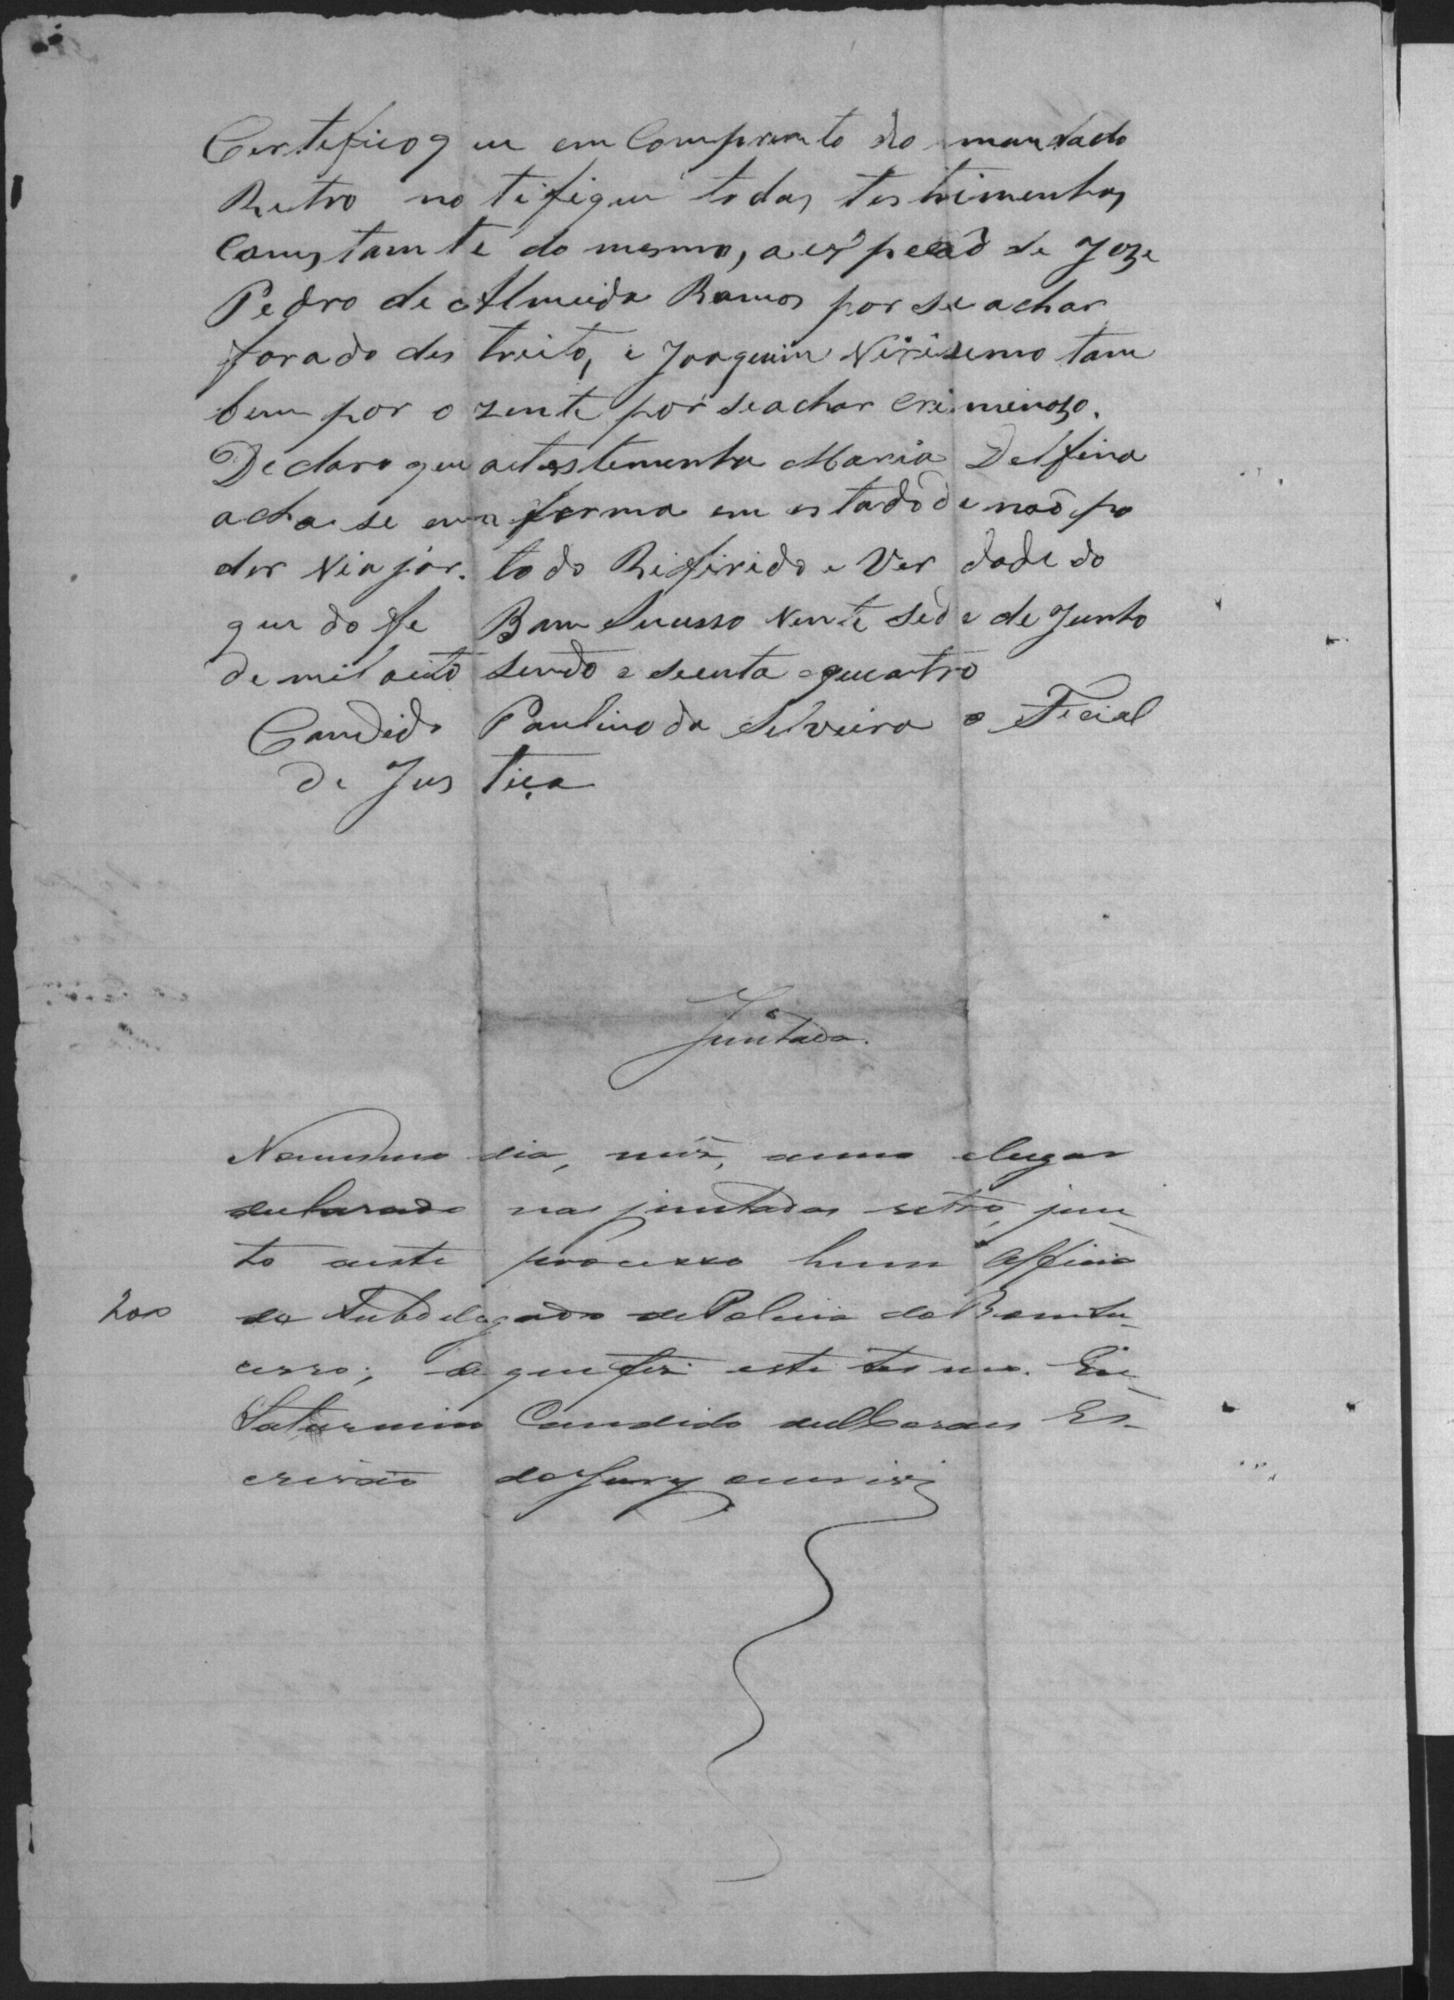 Certefico q ue em Comprimto do mandado
Retro no tifiquei todas testimenhas
Constam te do mesmo, a espeçaõ de Joze
Pedro de Almeida Ramos por se achar
fora do des treito, e Joaquim Virisimo tam
bem por o zente por se achar creminozo.
Declaro que a testemenha Maria Delfina
acha se em ferma em estado de naõ po
der Viajar. todo Rifirido e Ver dade do
que do fe Bam Sucesso Vente sed e de Junho
de mil oeito sendo e secenta e quatro
Candido Paulino da Silveira o Ficial
de Jus tiça
Juntada.
No mesmo dia, mês, anno e lugar
declarado nas juntadas retro, jun-
to a este processo hum Officio
200 do Subdelegado de Policia do Bom Su-
cesso; de que fiz este termo. Eu
Saturnino Candido de Moraes Es-
crivão do Jury escrevi